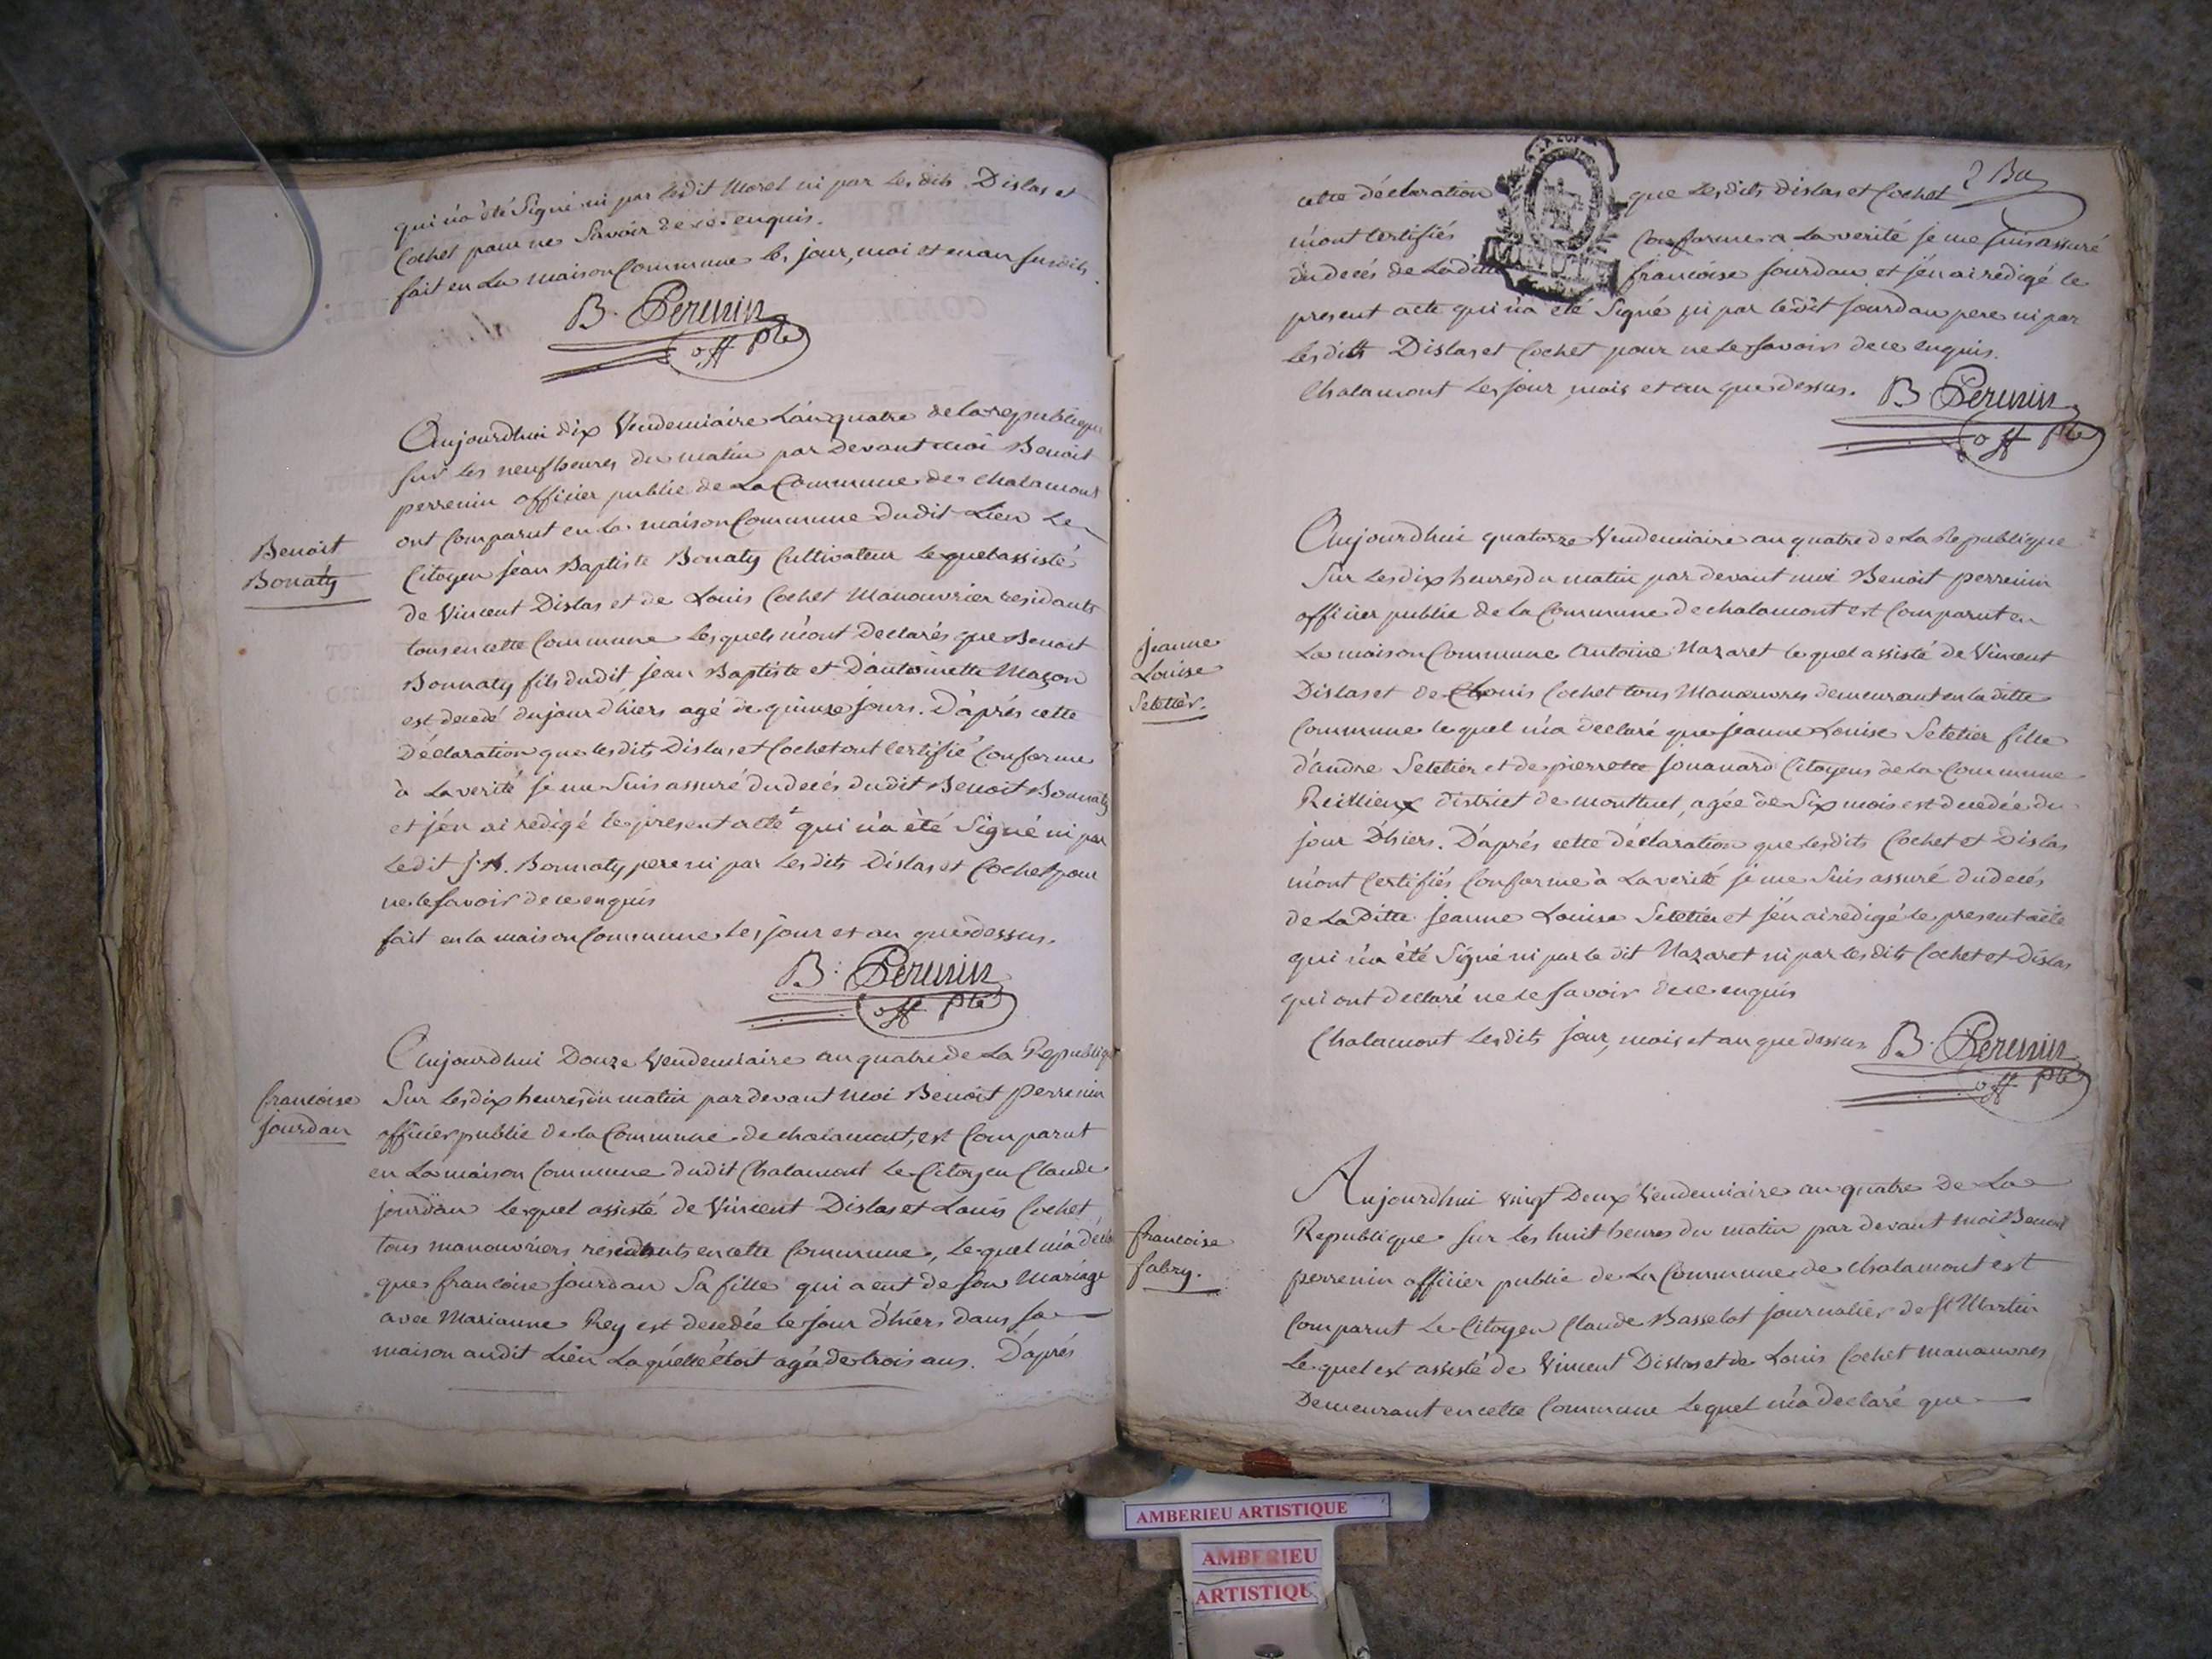 qui n'a été Signé ni par ledit Morel ni par Les dits Dislas et
Cochet pour ne Savoir de ce enquis.
fait en La maison Commune les jour, moi et en an susdits.
B. Perenin
off plc
Aujourdhui dix Vendemiaire L'an quatre de la republique
Sur les neuf heures du matin par Devant moi Benoit
perrenin officier public de La Commune de chalamont
ont Comparut en La maison Commune dudit Lieu Le
Benoit
Bonaty
Citoyen jean Baptiste Bonaty Cultivateur lequel assisté
de Vincent Dislas et de Louis Cochet Manouvrier residants
tous en cette Commune Lesquels m'ont Declarés que Benoit
Bonnaty fils dudit jean Baptiste et D'antoinette Maçon
est decedé dujour d'hiers agé de quinze jours. D'aprés cette
Déclaration que lesdits Dislas et Cochet ont Certifié Conforme
à La verité je me Suis assuré du decés dudit Benoit Bonnaty
et j'en ai redigé le present acte qui n'a èté Signé ni par
Ledit J.B. Bonnaty pere ni par Les dits Dislas et Cochet pour
ne le savoir de ce enquis
fait en la maison Commune les jour et an que dessus.
B: Perenin
off plc
Aujourdhui Douze Vendemiaire an quatre de La Republique
francoise
jourdan
Sur Les dix heures du matin par devant moi Benoit perrenin
officier public de la Commune de chalamont, est Comparut
en La maison Commune dudit Chalamont Le Citoyen Claude
jourdan lequel assisté de Vincent Dislas et Louis Cochet
tous manouvriers residants en cette Commune, Lequel m'a déclaré
que francoise jourdan Sa fille qui a eut de son Mariage
avec Marianne Rey est decedée le jour d'hiers dans sa
maison audit Lieu Laquelle étoit agé de trois ans. D'aprés
cette déclaration que Lesdits dislas et Cochet
m'ont Certifiés Conforme a La verité je me suis assuré
du decés de Laditte francoise jourdan et j'en ai redigé le
present acte qui n'a été Signé ni par ledit jourdan pere ni par
Lesdits Dislas et Cochet pour ne le savoir de ce enquis.
Chalamont Les jour mois et an que dessus. B Perenin
off plc
Aujourdhui quatorze Vendemiaire an quatre de La Republique
Sur Les dix heures du matin par devant moi Benoit perrenin
officier public de la Commune de chalamont est Comparut en
jeanne
Louise
Seletier.
La maison Commune Antoine Nazaret lequel assisté de Vincent
Dislas et de Louis Cochet tous Manouvres demeurant en la ditte
Commune lequel m'a declaré que jeanne Louise Seletier fille
d'andre Seletier et de pierrette jouanard Citoyens de la Commune
Reillieux district de montluel, agée de Six mois est decedée du
jour D'hiers. D'aprés cette déclaration que lesdits Cochet et Dislas
m'ont Certifiés Conforme à La verité je me Suis assuré du decés
de La Ditte jeanne Louise Seletier et j'en ai redigé le present acte
qui n'a été Signé ni par le dit Nazaret ni par les dits Cochet et Dislas
qui ont declaré ne le savoir de ce enquis
Chalamont Lesdits jour, mois et an que dessus B. Perenin
off plc
Aujourdhui vingt Deux Vendemiaire an quatre De La
francoise
fabry.
Republique Sur les huit heures du matin par devant moi Benoit
perrenin officier public de La Commune de chalamont est
Comparut Le Citoyen Claude Basselot journalier de St Martin
Lequel est assisté de Vincent Dislas et de Louis Cochet manouvres
Demeurant en cette Commune Lequel m'a declaré que
AMBERIEU ARTISTIQUE
AMBERIEU
ARTISTIQUE